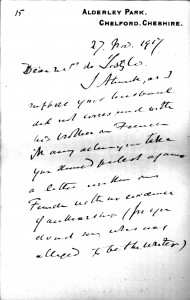 15
ALDERLEY PARK.
CHELFORD, CHESHIRE.
27 Nov. 1917
Dear Mrs de
I think, as I
suppose your husband
did not correspond with
his brother in French
in any
you should protest against
a letter written in
French with no evidence
of authorship (for you
do not say who was
alleged to be the writer)